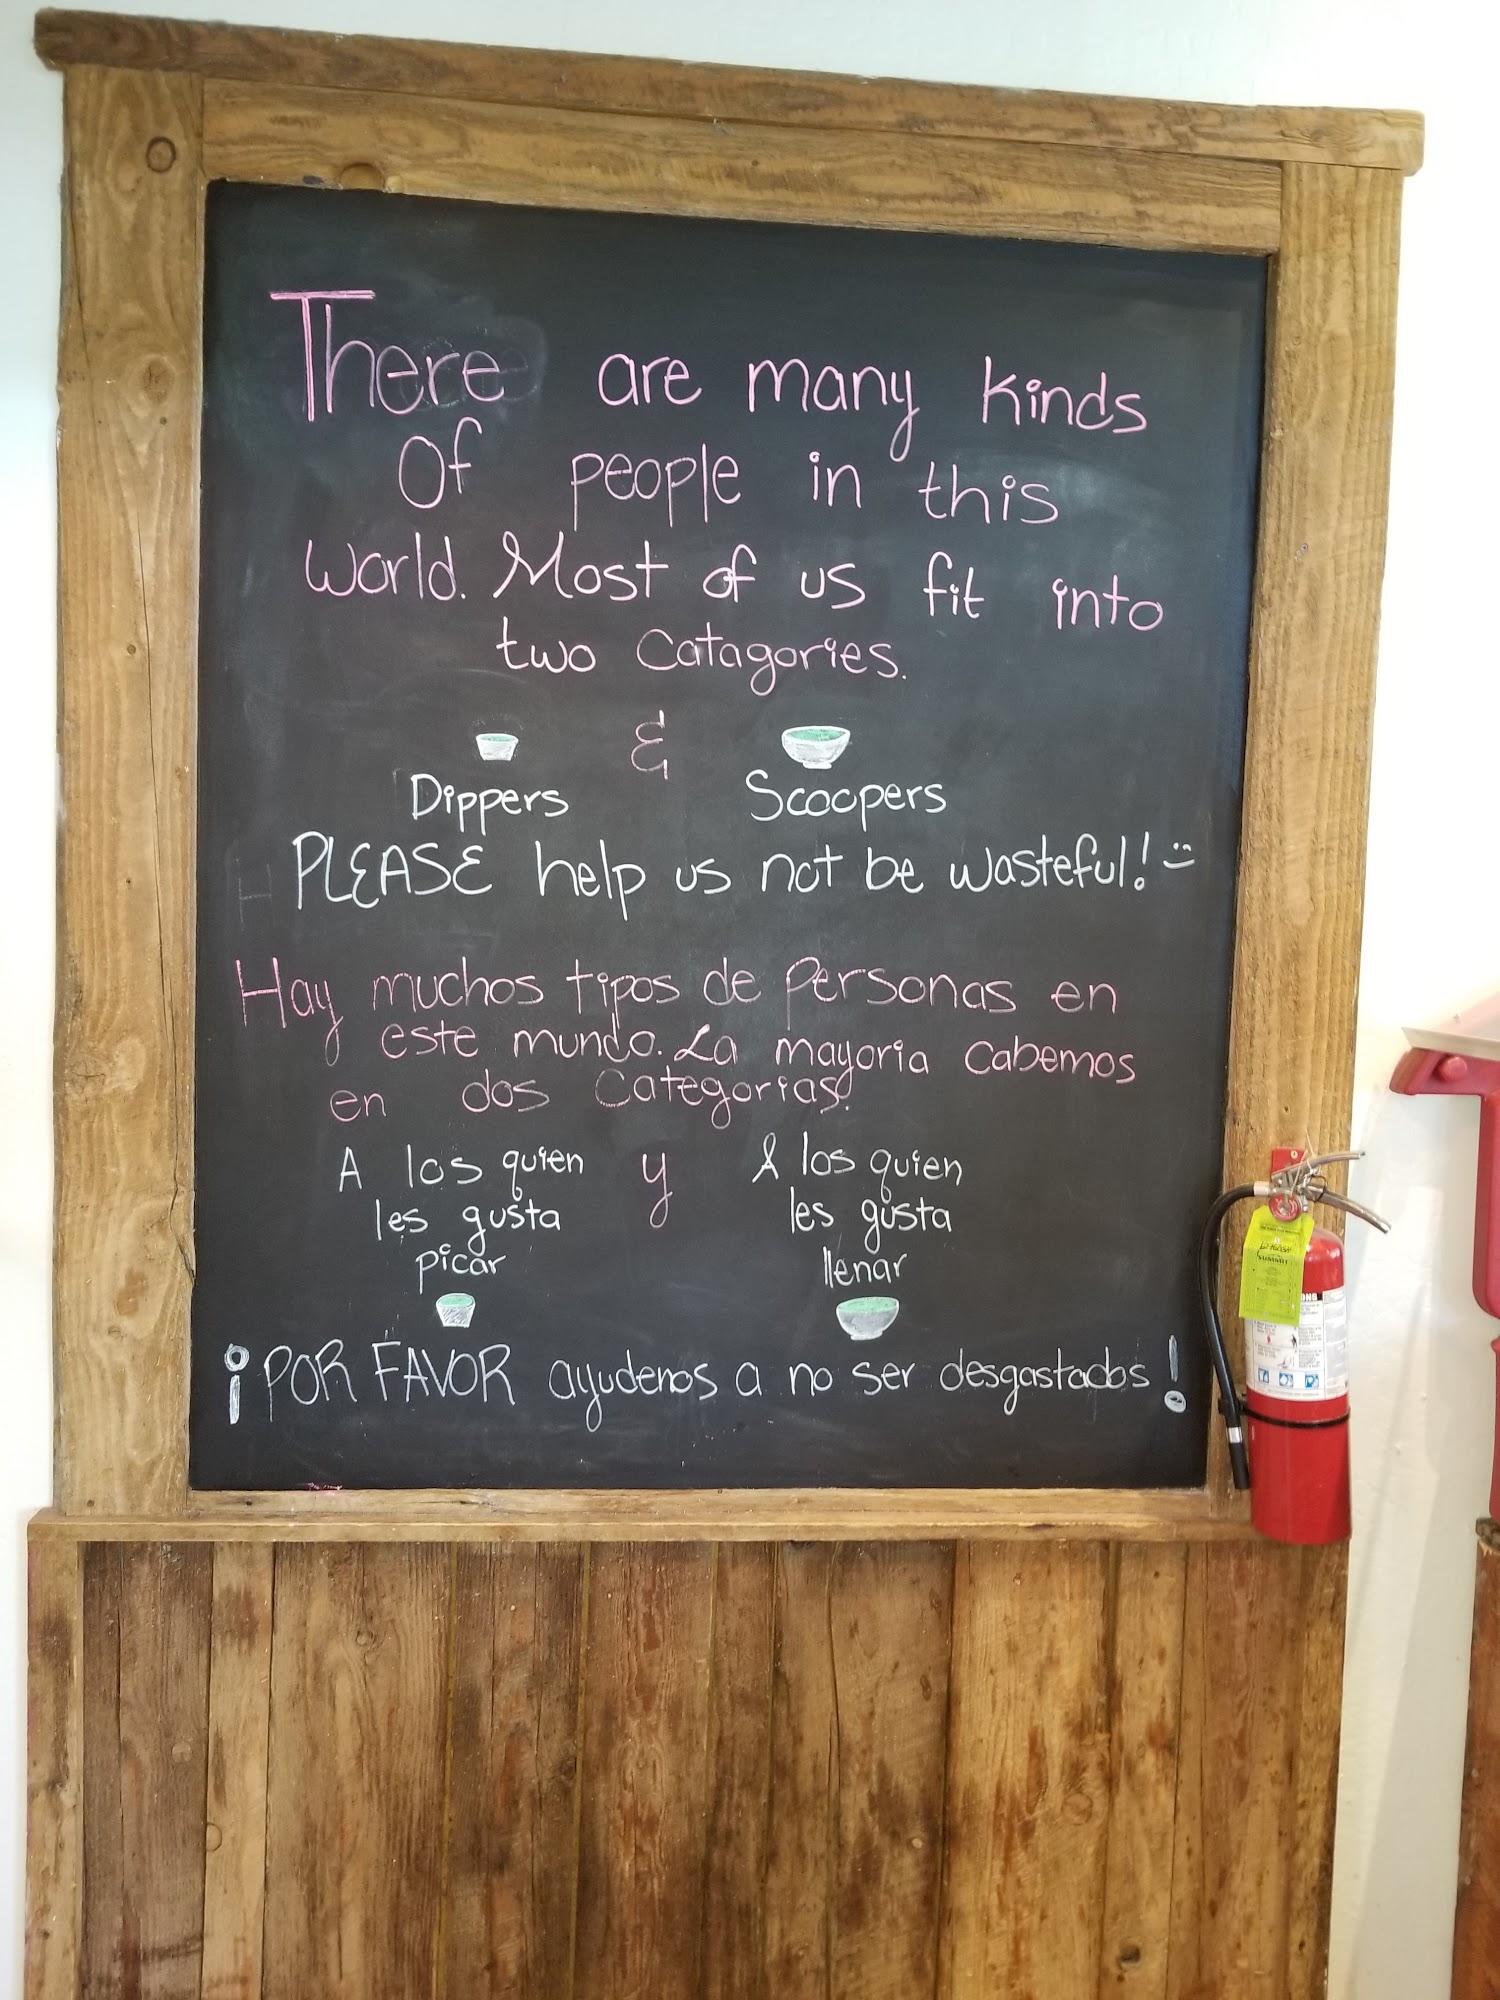 There are many kinds
Of people in this
World. Most of us fit into
two Catagories.
&
Dippers Scoopers
PLEASE help us not be wasteful! :)
Hay muchos tipos de personas en
este mundo. La mayoria cabemos
en dos categorias.
A los quien y A los quien
les gusta les gusta
picar llenar
¡POR FAVOR ayudenos a no ser desgastados!